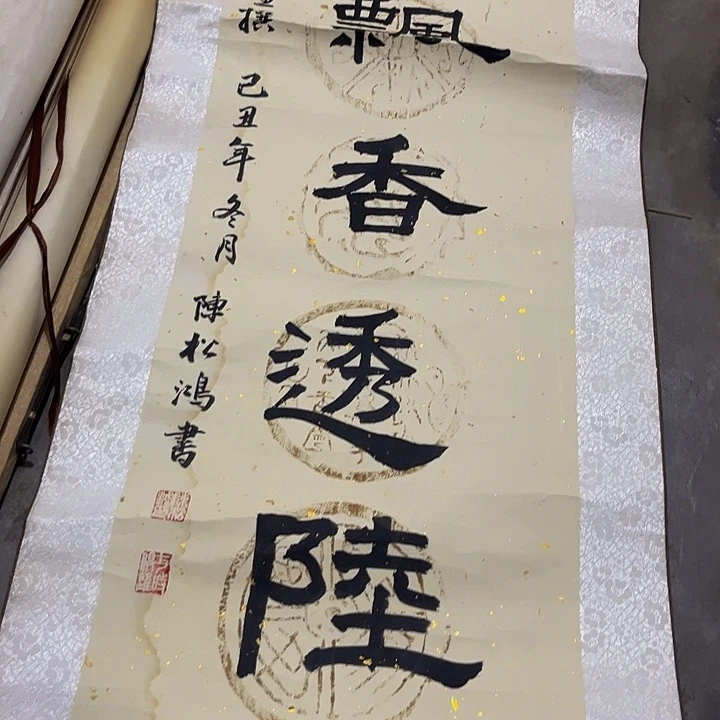 飄香透陸
撰 己丑年 冬月 陳松鴻書